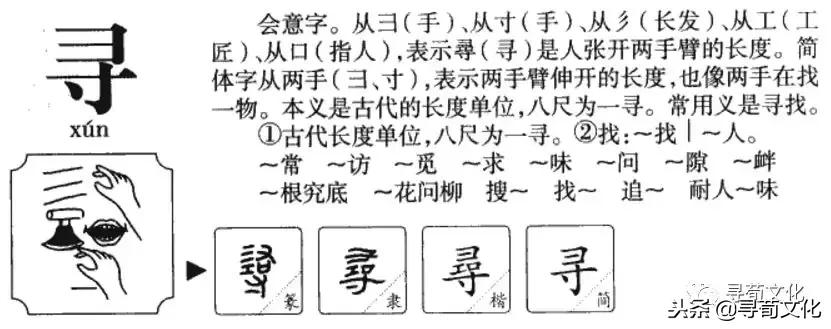 寻
xún
会意字。从彐(手)、从寸(手)、从彡(长发)、从工(工
匠)、从口(指人),表示尋(寻)是人张开两手臂的长度。简
体字从两手(彐、寸),表示两手臂伸开的长度,也像两手在找
一物。本义是古代的长度单位,八尺为一寻。常用义是寻找。
①古代长度单位,八尺为一寻。②找:~找|~人。
~常 ~访 ~觅 ~求 ~味 ~问 ~隙 ~衅
~根究底 ~花问柳 搜~ 找~ 追~ 耐人~味
尋 篆
尋 隶
尋 楷
寻 简
寻荀文化
头条@寻荀文化